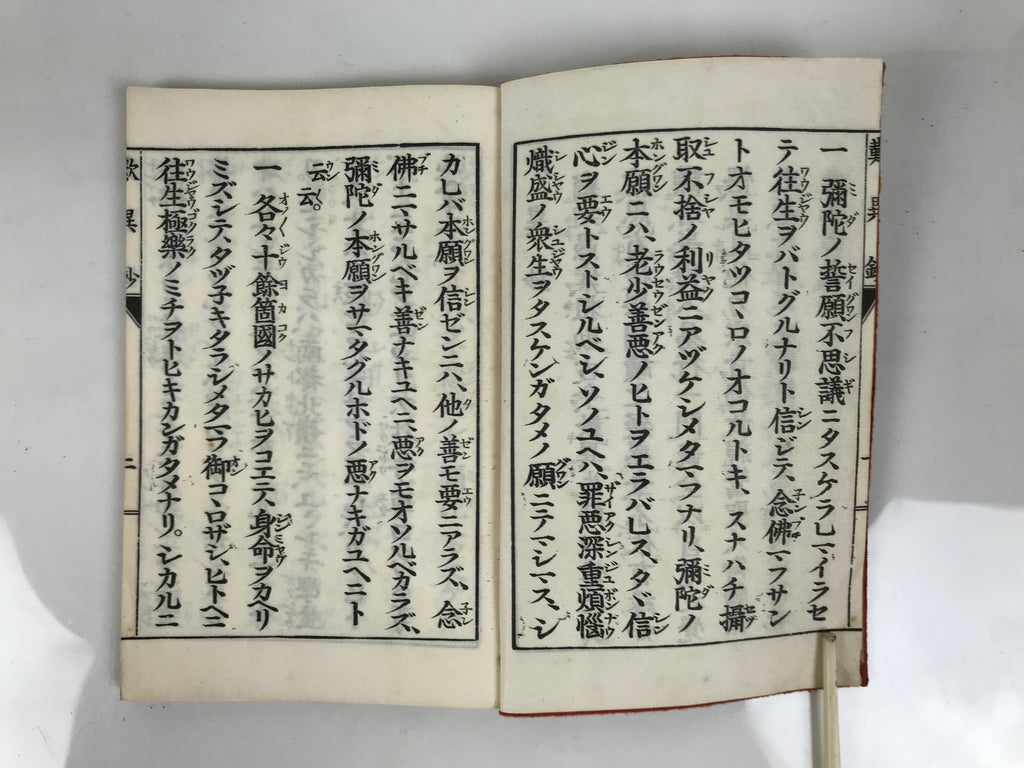 一 彌陀ノ誓願不思議ニタスケラレマイラセ
テ往生ヲバトグルナリト信ジテ、念佛マフサン
トオモヒタツコヽロノオコルトキ、スナハチ攝
取不捨ノ利益ニアヅケシメタマフナリ、彌陀ノ
本願ニハ、老少善悪ノヒトヲエラバレス、タヾ信
心ヲ要トストシルベシ、ソノユヘハ、罪悪深重煩惱
熾盛ノ衆生ヲタスケンガタメノ願ニテマシマス、シ
カレバ本願ヲ信ゼンニハ、他ノ善モ要ニアラズ、念
佛ニマサルベキ善ナキユヘニ、悪ヲモオソルベカラズ、
彌陀ノ本願ヲサマタグルホドノ悪ナキガユヘニト
云云。
一 各々十餘箇國ノサカヒヲコエテ、身命ヲカヘリ
ミズシテ、タヅ子キタラシメタマフ御コヽロザシ、ヒトヘニ
往生極樂ノミチヲトヒキカンガタメナリ。シカルニ
歎異鈔
二